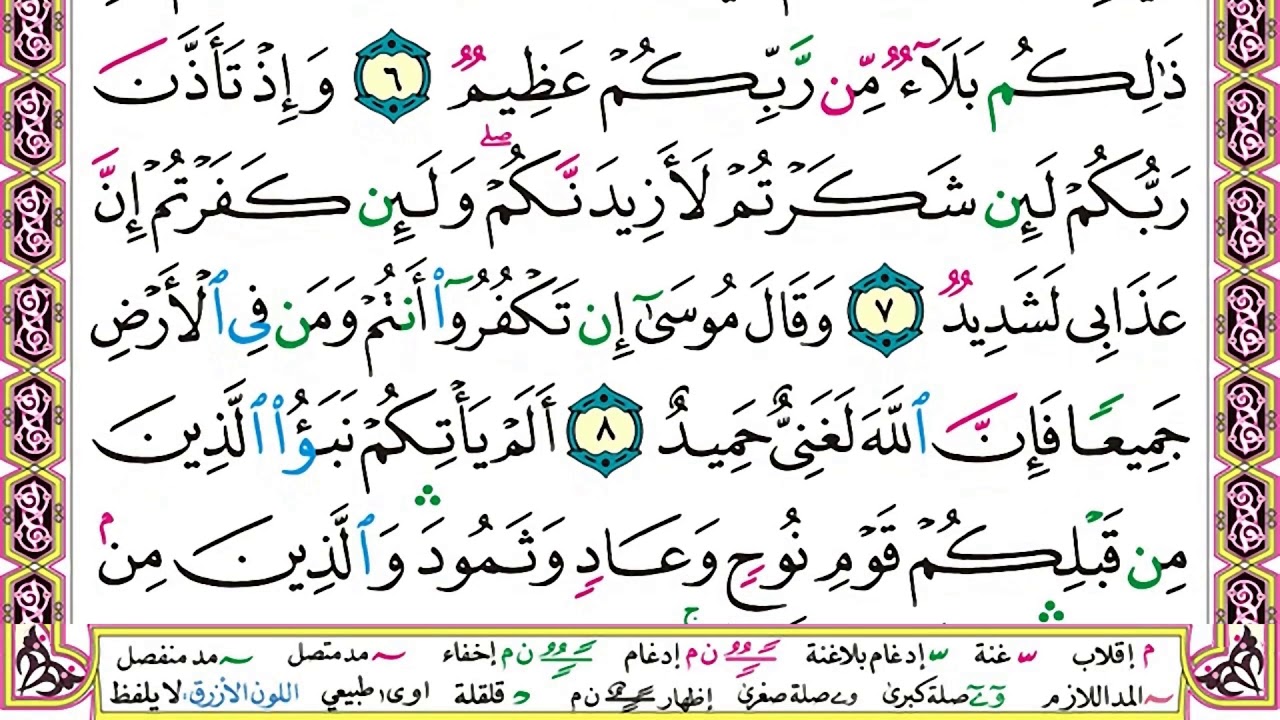 ذَٰلِكُم بَلَآءٌ مِّن رَّبِّكُمْ عَظِيمٌ ٦ وَإِذْ تَأَذَّنَ
رَبُّكُمْ لَئِن شَكَرْتُمْ لَأَزِيدَنَّكُمْ ۖ وَلَئِن كَفَرْتُمْ إِنَّ
عَذَابِى لَشَدِيدٌ ٧ وَقَالَ مُوسَىٰٓ إِن تَكْفُرُوٓا۟ أَنتُمْ وَمَن فِى ٱلْأَرْضِ
جَمِيعًا فَإِنَّ ٱللَّهَ لَغَنِىٌّ حَمِيدٌ ٨ أَلَمْ يَأْتِكُمْ نَبَؤُا۟ ٱلَّذِينَ
مِن قَبْلِكُمْ قَوْمِ نُوحٍ وَعَادٍ وَثَمُودَ ۛ وَٱلَّذِينَ مِنۢ
م إقلاب ـّ غنة ـّ إدغام بلاغنة ن م إدغام ن م إخفاء ~ مد متصل ~ مد منفصل
~ المد اللازم وے صلة كبرىٰ وے صلة صغرىٰ إظهار ن م د قلقلة اوى طبيعي اللون الأزرق لا يلفظ